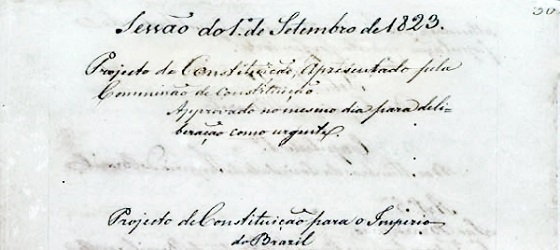 30
Sessão do 1º de Setembro de 1823.
Projecto de Constituição, Apresentado pela
Commissão de Constituição
Approvado no mesmo dia para deli-
beração como urgente.
Projecto de Constituição para o Imperio
do Brazil